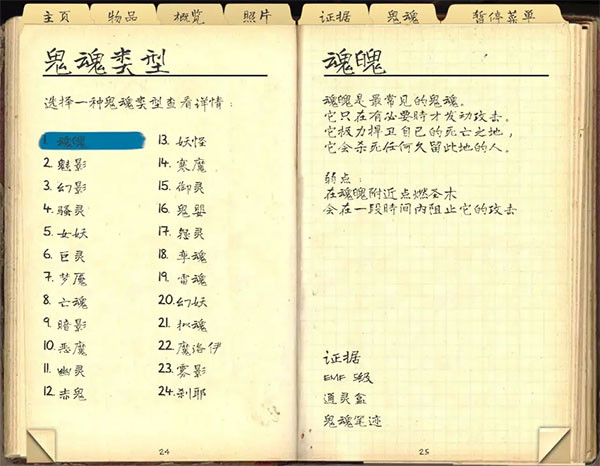 主页 物品 概览 照片 证据 鬼魂 暂停菜单
鬼魂类型
选择一种鬼魂类型查看详情：
1. 魂魄
2. 魅影
3. 幻影
4. 骚灵
5. 女妖
6. 巨灵
7. 梦魇
8. 亡魂
9. 暗影
10. 恶魔
11. 幽灵
12. 赤鬼
13. 妖怪
14. 寒魔
15. 御灵
16. 鬼婴
17. 怨灵
18. 孪魂
19. 雷魂
20. 幻妖
21. 拟魂
22. 魔洛伊
23. 雾影
24. 刹耶
24
魂魄
魂魄是最常见的鬼魂。
它只在有必要時才发动攻击。
它极力捍卫自己的死亡之地，
它会杀死任何久留此地的人。
弱点：
在魂魄附近点燃圣木
会在一段時间内阻止它的攻击
证据
EMF 5级
通灵盒
鬼魂笔迹
25